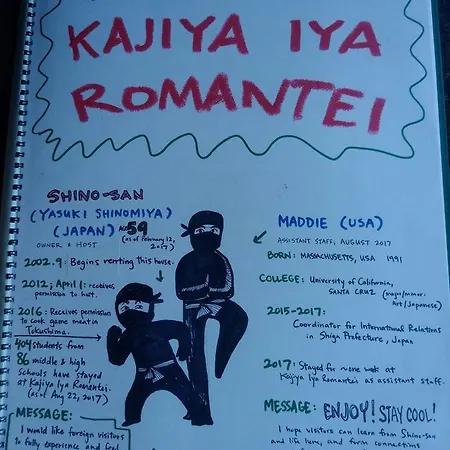 KAJIYA IYA
ROMANTEI
SHINO-SAN
(YASUKI SHINOMIYA)
(JAPAN) AGE 59
(as of February 12,
2017)
OWNER & HOST
2002.9: Begins renting this house.
2012; April 1: receives
permission to hunt.
2016: Receives permission
to cook game meat in
Tokushima.
404 students from
86 middle & high
schools have stayed
at Kajiya Iya Romantei.
(as of Aug 22, 2017)
MESSAGE:
I would like foreign visitors
to fully experience and feel
MADDIE (USA)
ASSISTANT STAFF, AUGUST 2017
BORN: MASSACHUSETTS, USA 1991
COLLEGE: University of California,
SANTA CRUZ (major/minor:
Art/Japanese)
2015-2017:
Coordinator for International Relations
in Shiga Prefecture, Japan
2017: Stayed for ~one week at
Kajiya Iya Romantei as assistant staff.
MESSAGE: ENJOY! STAY COOL!
I hope visitors can learn from Shino-san
and life here, and form connections